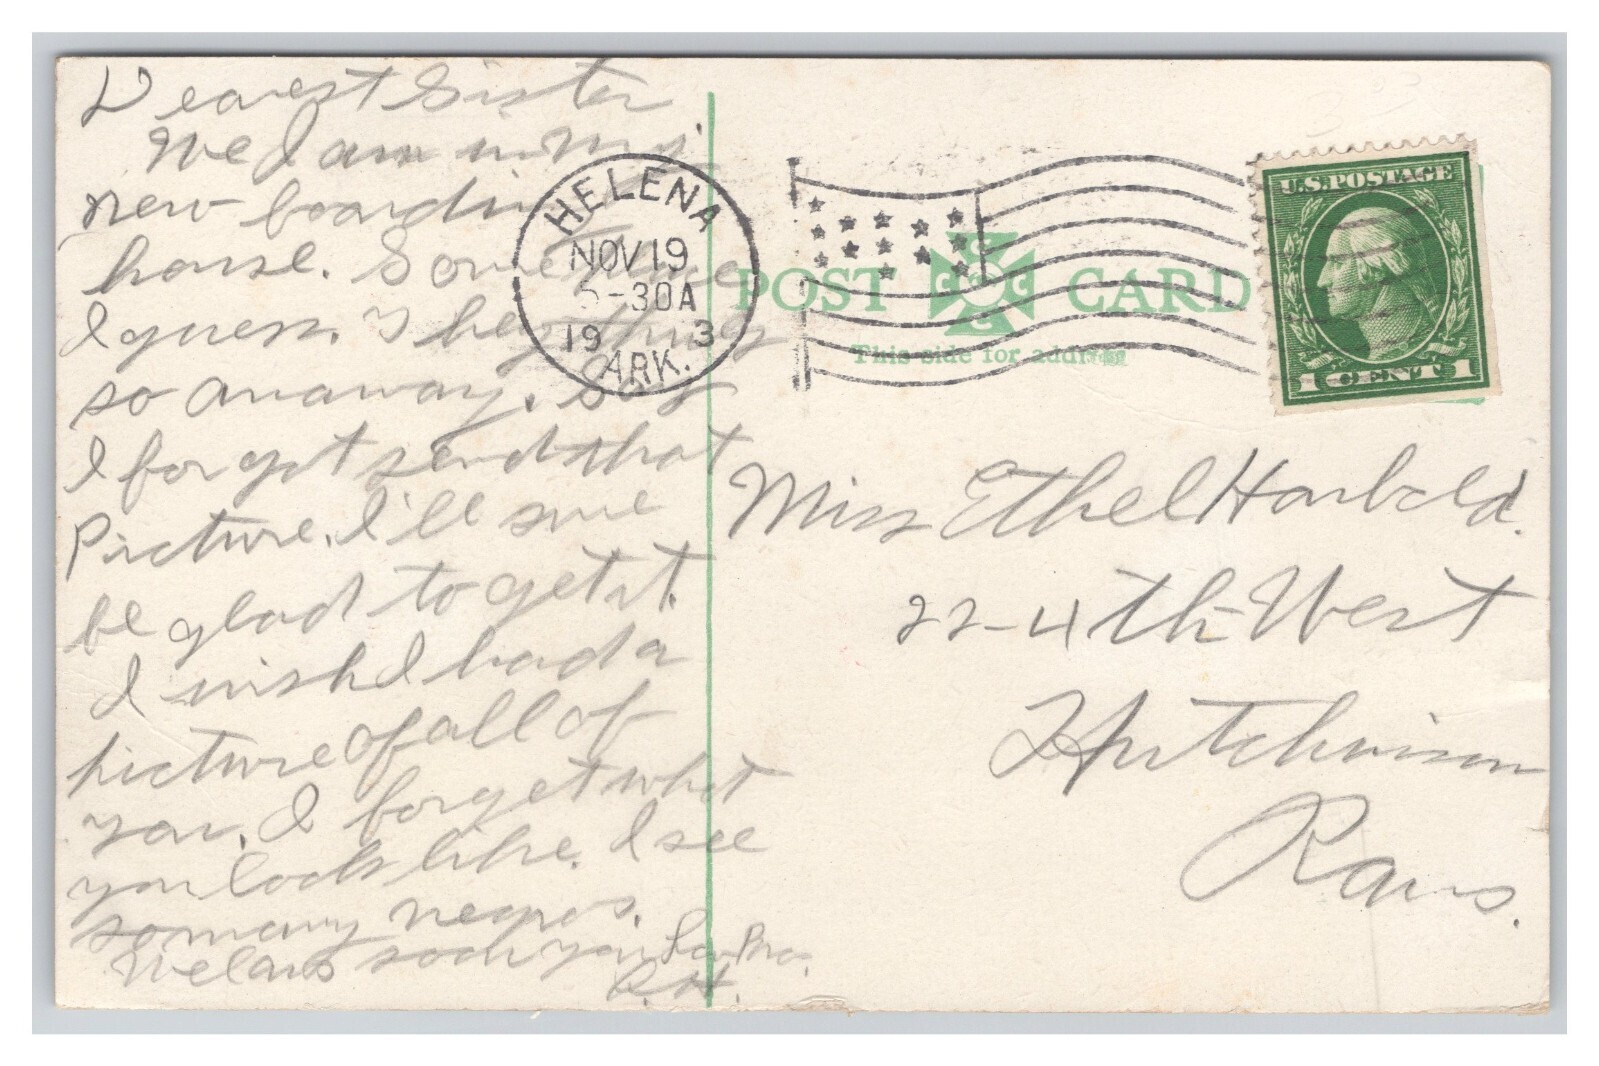 Dearest Sister
Well I am in My
new boarding
house. Some place
I guess. I hey things
so anaway. Say
I forgot send that
Picture. I'll sure
be glad to get it.
I wish I had a
picture of all of
you. I forget what
you look like. I see
so many negros.
Well ans soon your Lov Bro.
R.H.
HELENA
NOV 19
5-30A
19 3
ARK.
POST CARD
This side for address
U.S. POSTAGE
1 CENT 1
Miss Ethel Harbold.
22-4th-West
Hutchinson
Kans.